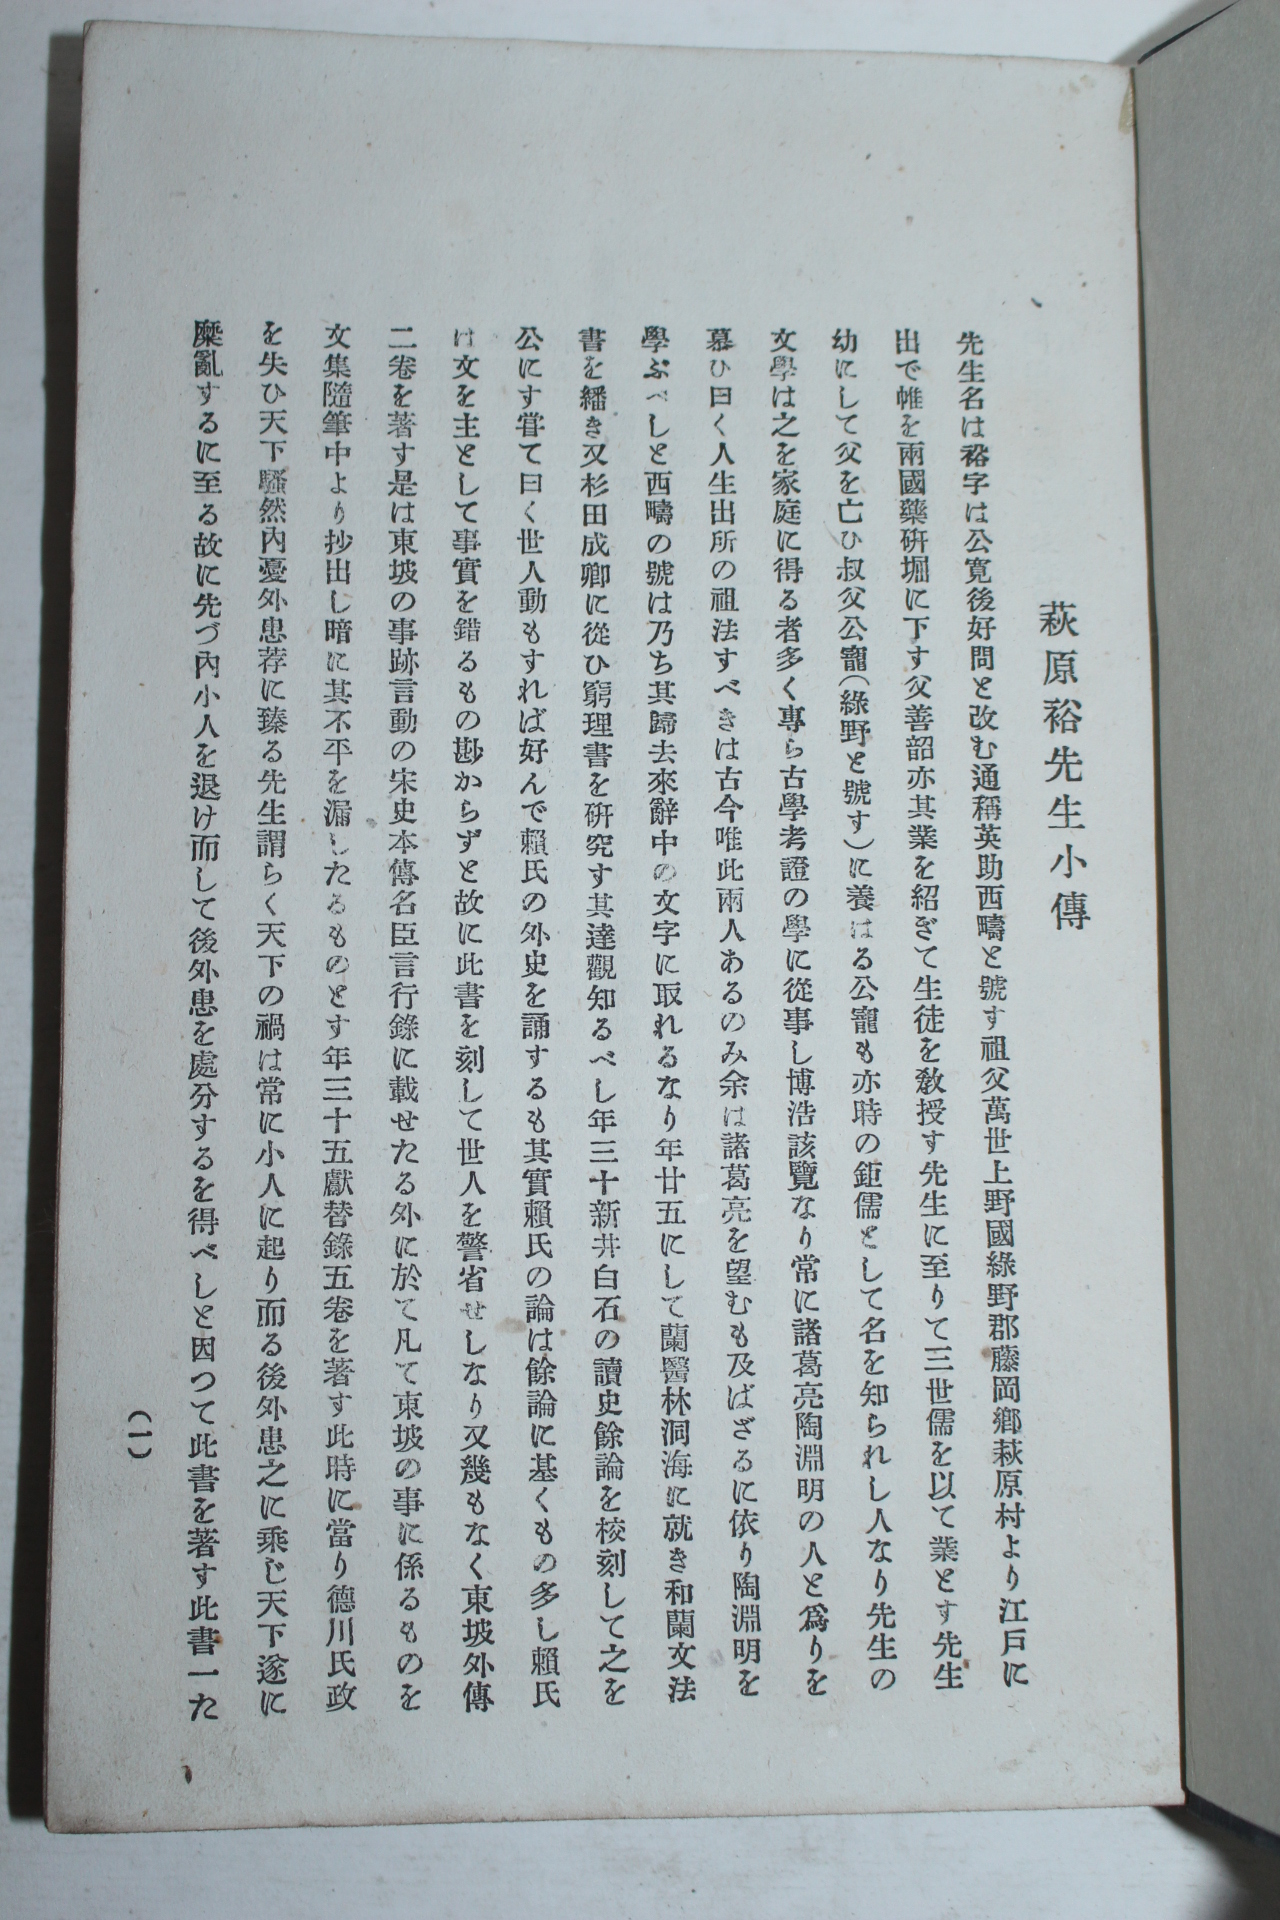 萩原裕先生小傳
先生名は裕字は公寛後好問と改む通稱英助西疇と號す祖父萬世上野國綠野郡藤岡鄕萩原村より江戸に
出で帷を兩國藥硏堀に下す父善韶亦其業を紹ぎて生徒を敎授す先生に至りて三世儒を以て業とす先生
幼にして父を亡ひ叔父公寵(綠野と號す)に養はる公寵も亦時の鉅儒として名を知られし人なり先生の
文學は之を家庭に得る者多く專ら古學考證の學に從事し博浩該覽なり常に諸葛亮陶淵明の人と爲りを
慕ひ曰く人生出所の祖法すべきは古今唯此兩人あるのみ余は諸葛亮を望むも及ばざるに依り陶淵明を
學ぶべしと西疇の號は乃ち其歸去來辭中の文字に取れるなり年廿五にして蘭醫林洞海に就き和蘭文法
書を繙き又杉田成卿に從ひ窮理書を硏究す其達觀知るべし年三十新井白石の讀史餘論を校刻して之を
公にす甞て曰く世人動もすれば好んで賴氏の外史を誦するも其實賴氏の論は餘論に基くもの多し賴氏
は文を主として事實を錯るもの尠からずと故に此書を刻して世人を警省せしなり又幾もなく東坡外傳
二卷を著す是は東坡の事跡言動の宋史本傳名臣言行錄に載せたる外に於て凡て東坡の事に係るものを
文集隨筆中より抄出し暗に其不平を漏したるものとす年三十五獻替錄五卷を著す此時に當り德川氏政
を失ひ天下騷然內憂外患荐に臻る先生謂らく天下の禍は常に小人に起り而る後外患之に乘じ天下遂に
糜亂するに至る故に先づ內小人を退け而して後外患を處分するを得べしと因つて此書を著す此書一た
(一)